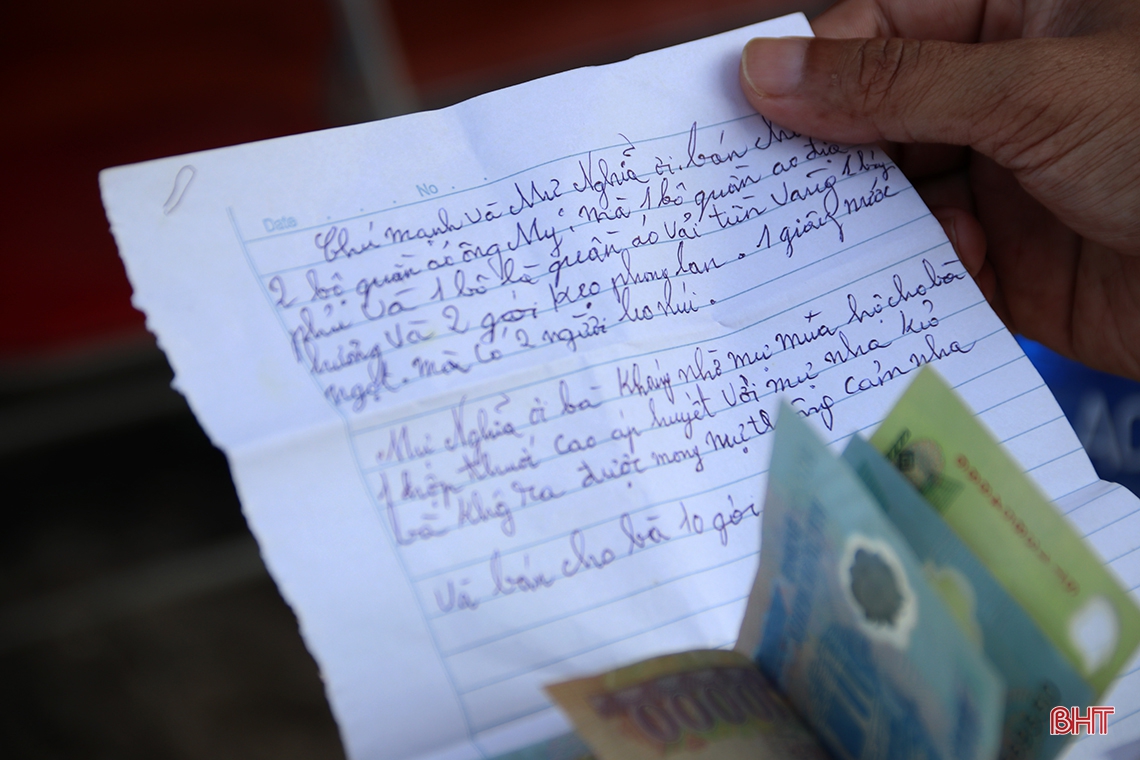 No . .
Date . . . . .
Chú mạnh và Mự Nghĩa ơi. bán
2 bộ quần áo ông Mỵ. mà 1 bộ quần ao địa
phủ và 1 bộ là quần áo vải tiền vang 1
hương và 2 gói kẹo phong lan. 1 giây nước
ngọt. mà có 2 người leo núi.
Mự Nghĩa ơi bà Khang nhờ mự mua hộ cho bà
1 hộp thuốc cao áp huyết với mự nha kẻo
bà khg ra được mong mự cảm nha
và bán cho bà 10 gói
00000
BHT